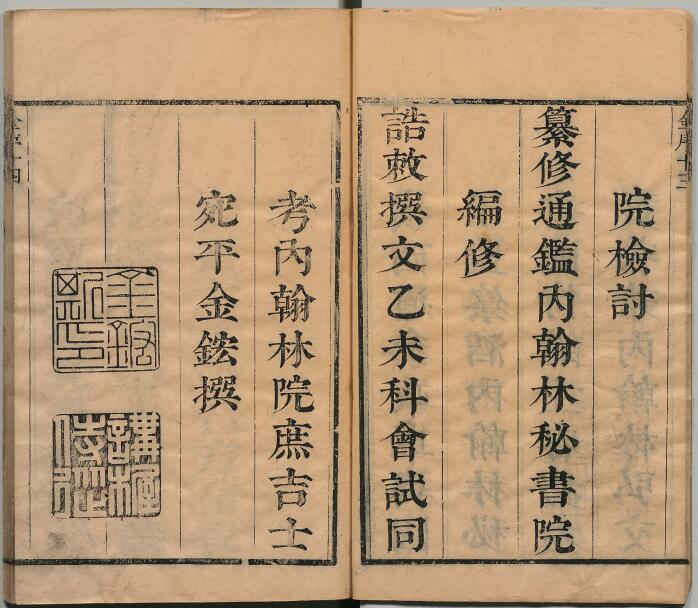 院檢討
纂修通鑑內翰林秘書院
編修
誥敕撰文乙未科會試同
考內翰林院庶吉士
宛平金鋐撰
金鋐
講幄侍從